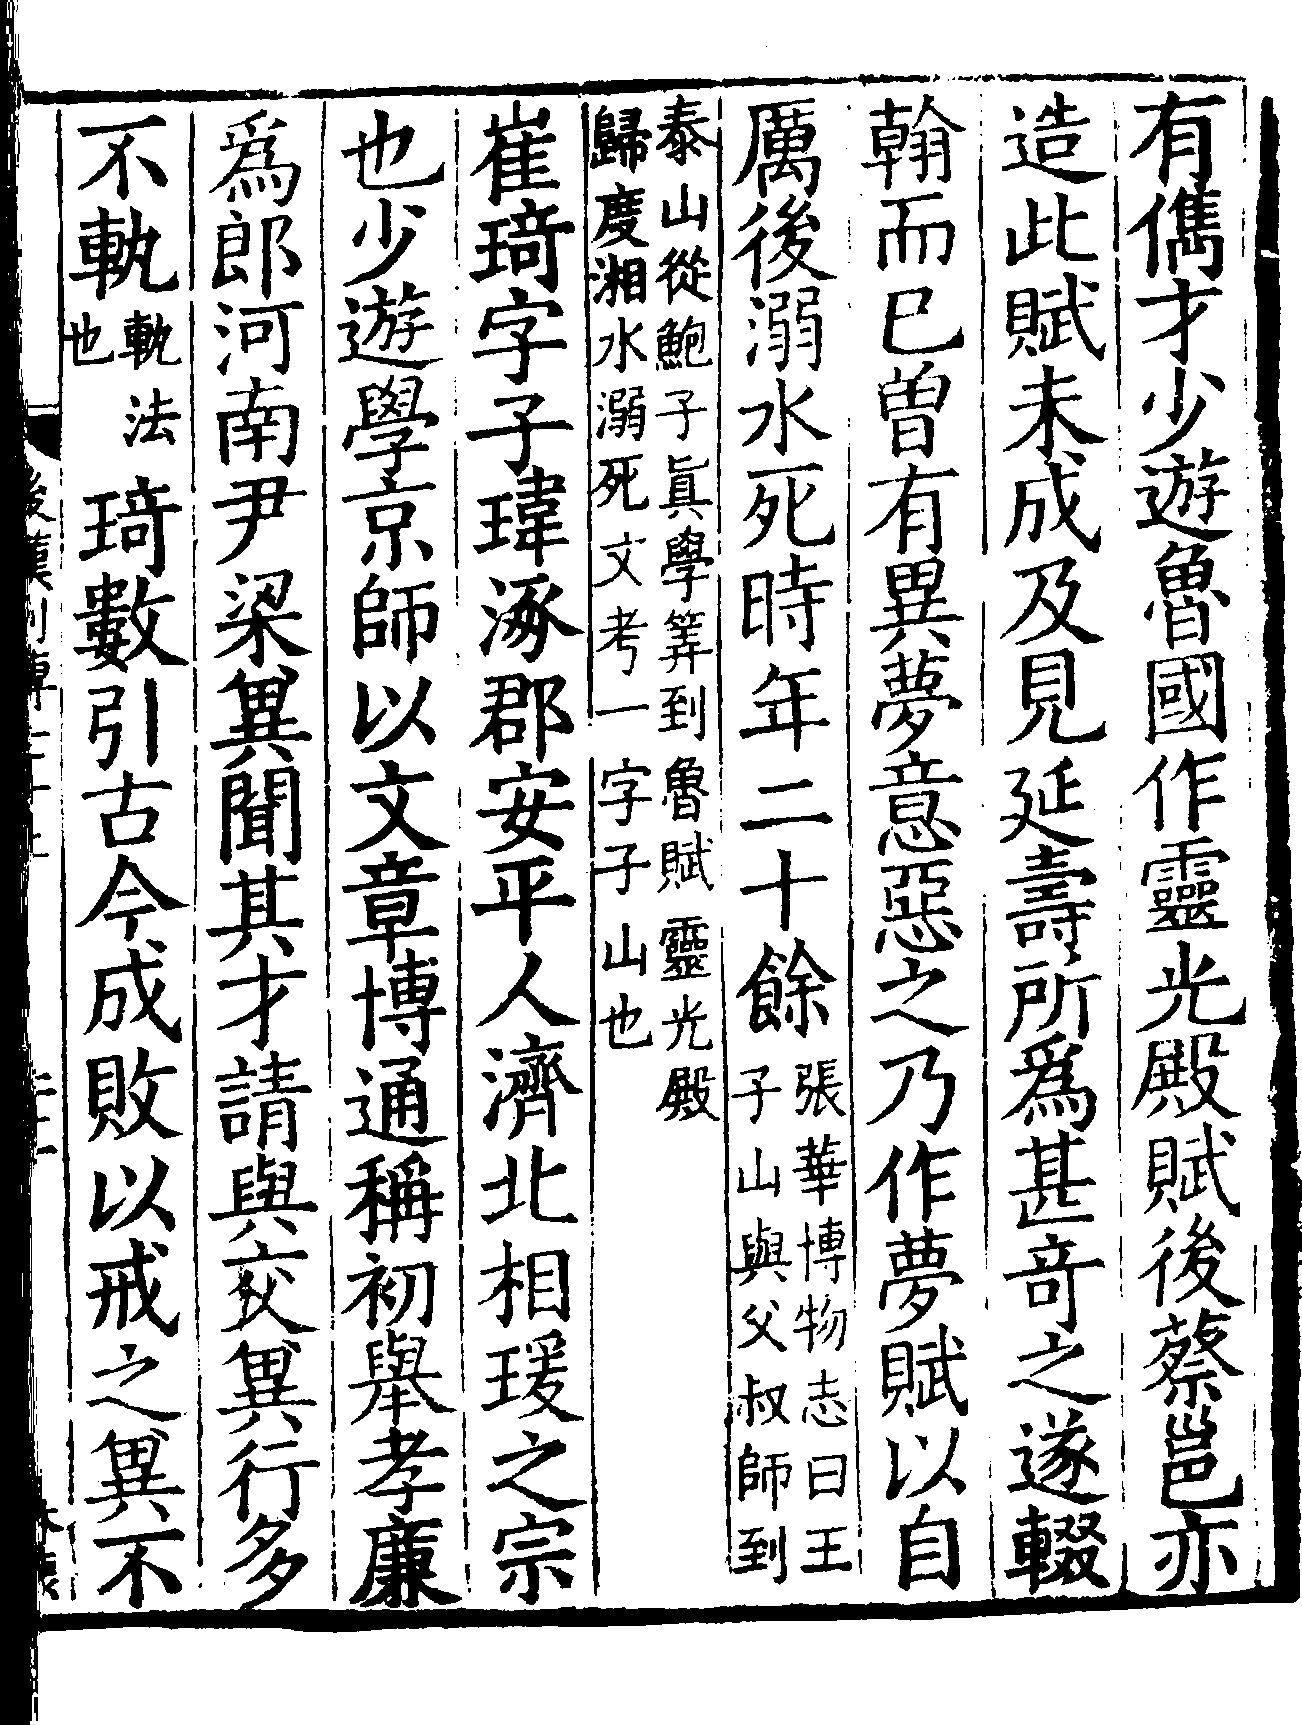 有儁才少遊魯國作靈光殿賦後蔡邕亦
造此賦未成及見延壽所爲甚奇之遂輟
翰而已曽有異夢意惡之乃作夢賦以自
厲後溺水死時年二十餘張華博物志曰王
子山與父叔師到
泰山從鮑子眞學筭到魯賦靈光殿
歸度湘水溺死文考一字子山也
崔琦字子瑋涿郡安平人濟北相瑗之宗
也少遊學京師以文章博通稱初舉孝廉
爲郎河南尹梁兾聞其才請與交兾行多
不軌軌法
也
琦數引古今成敗以戒之兾不